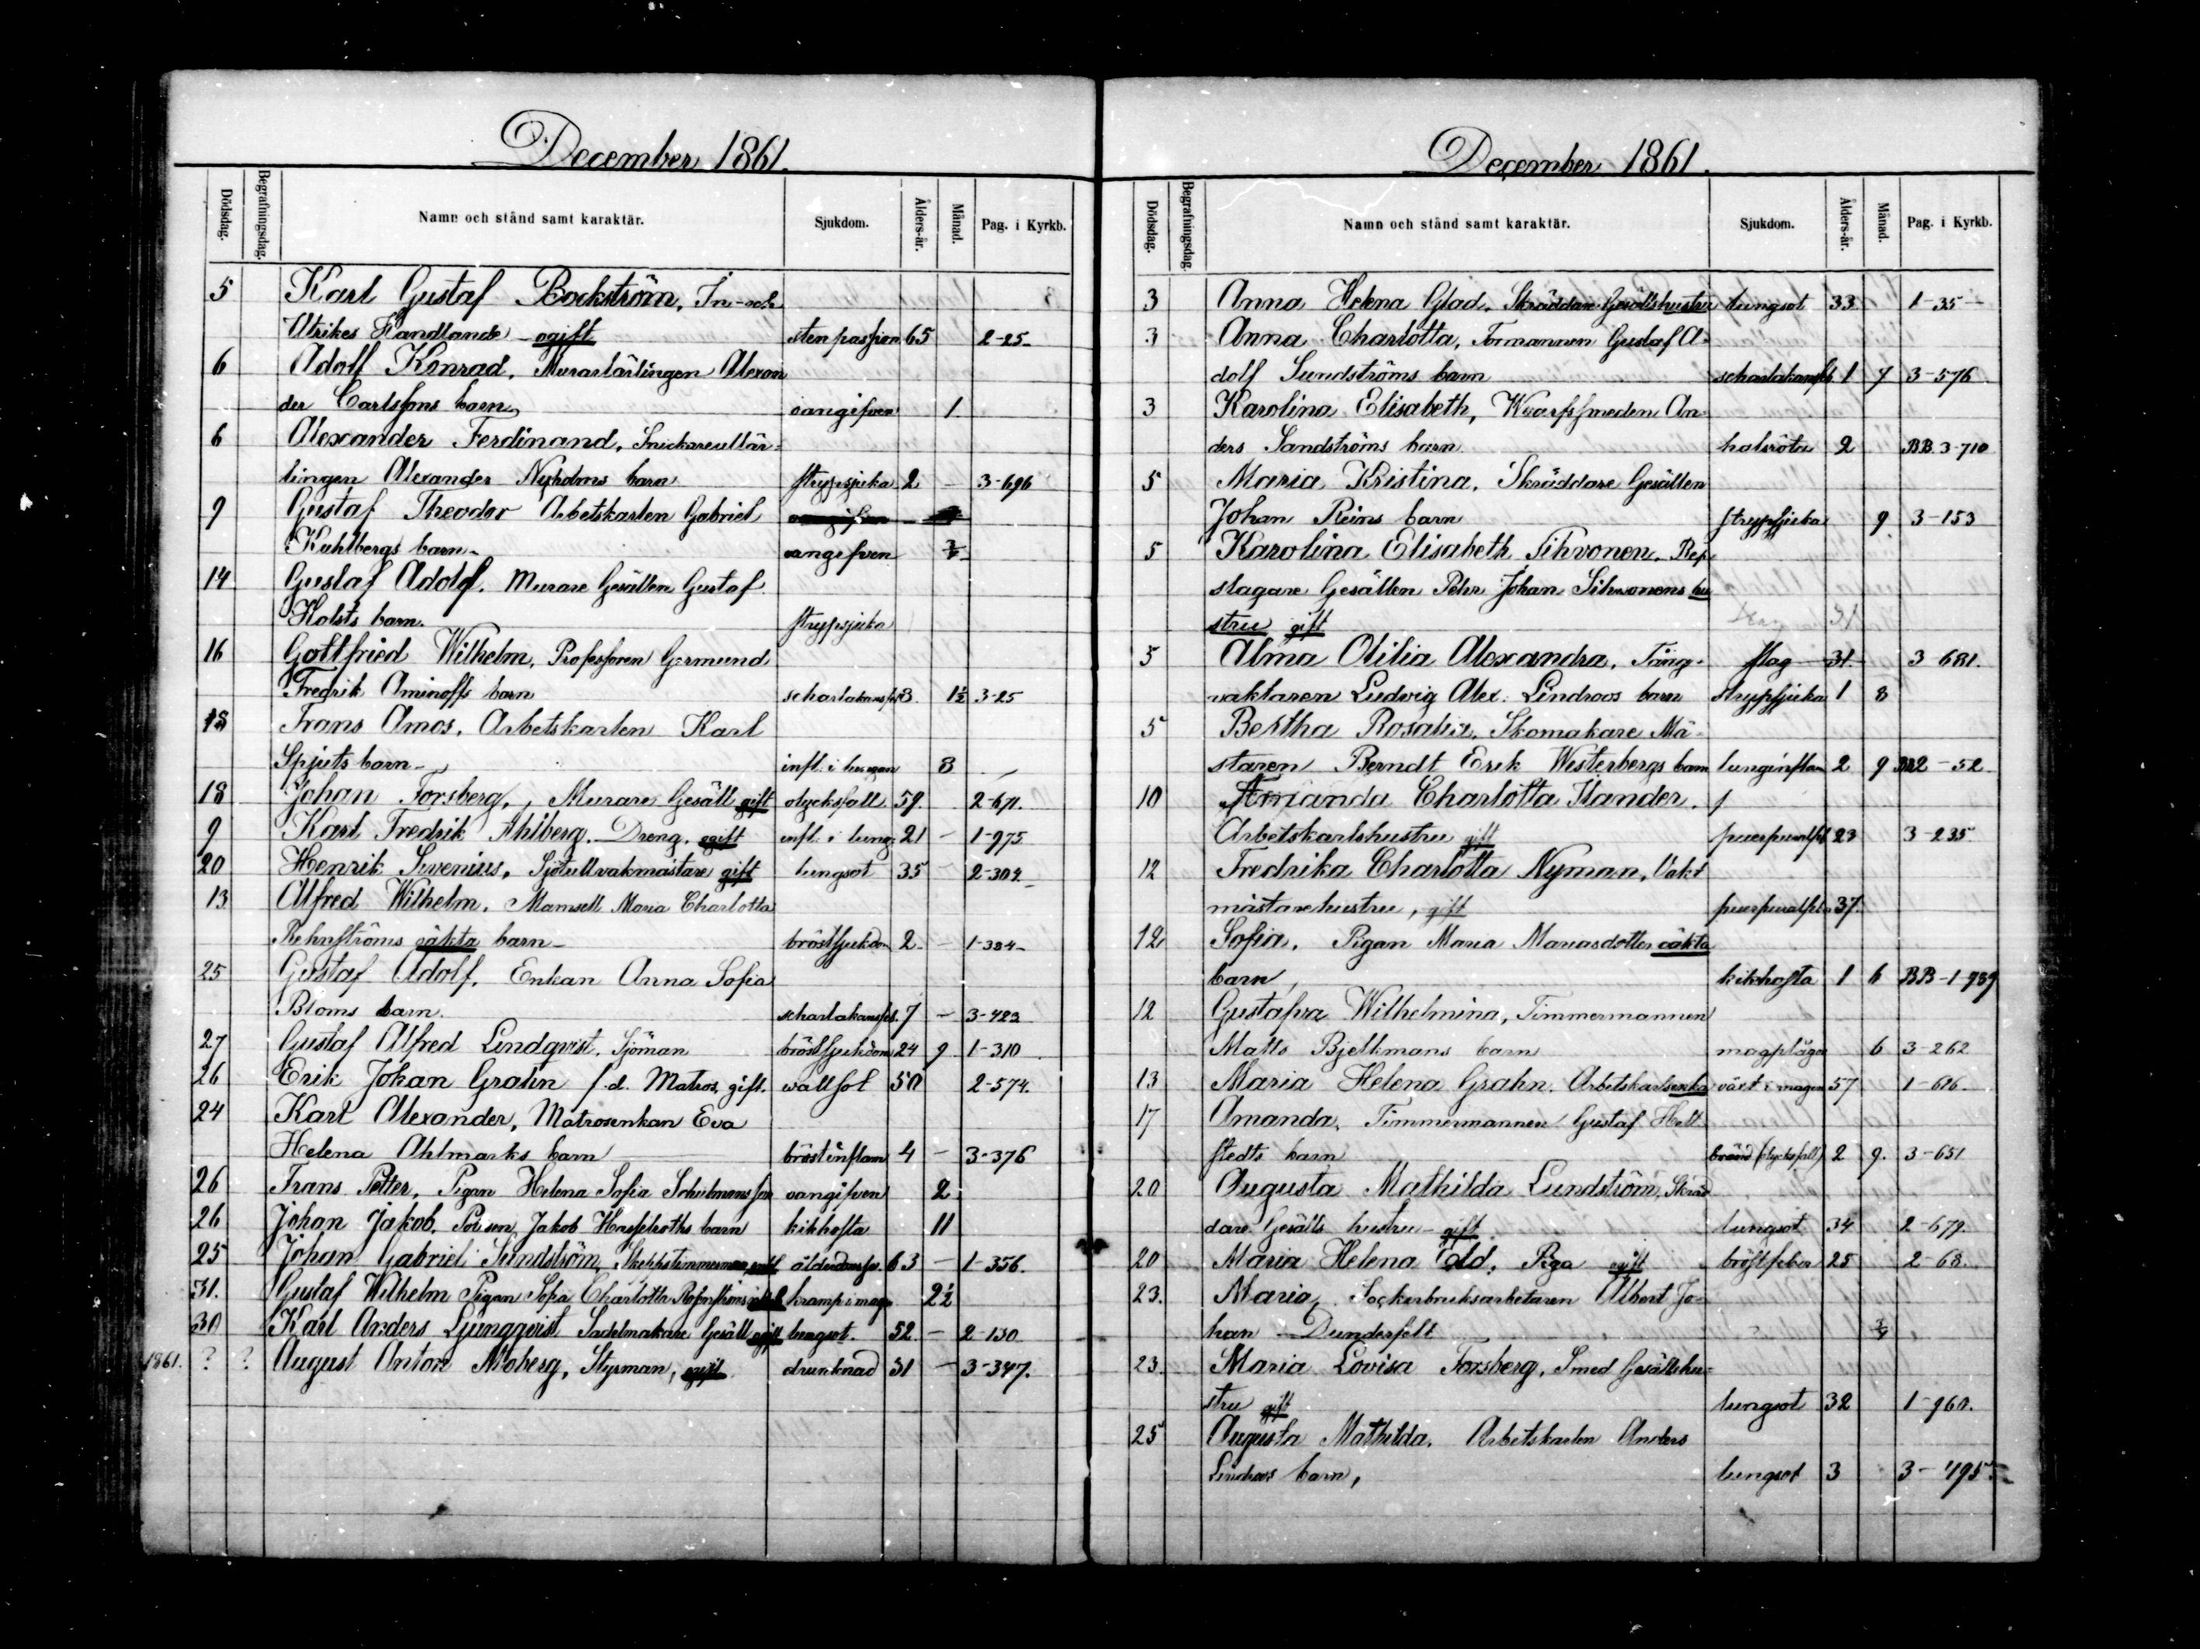 December 1861.
Dödsdag. Begrafningsdag. Namn och stånd samt karaktär. Sjukdom. Ålders-år. Månad. Pag. i Kyrkb.
5 Karl Gustaf Bockström, In- och
Utrikes Handlande ogift stenpassion 65 2-25
6 Adolf Konrad, Murarlärlingen Alexan
der Carlssons barn oangifven 1
6 Alexander Ferdinand, Snickarelär-
lingen Alexander Nyholms barn strypsjuka 2 - 3-696
9 Gustaf Theodor Arbetskarlen Gabriel
Kuhlbergs barn oangifven
14 Gustaf Adolf. Murare Gesällen Gustaf
Holsts barn. strypsjuka
16 Gottfried Wilhelm, Professoren Germund
Fredrik Aminoffs barn scharlakansf. 3 1½ 3-25
18 Frans Amos, Arbetskarlen Karl
Spjuts barn infl. i lungan 8
18 Johan Forsberg, Murare Gesäll gift olycksfall 59 2-671.
9 Karl Fredrik Ahlberg. Dreng, ogift infl. i lung. 21 - 1-975
20 Henrik Sivenius, Sjötullvakmästare gift lungsot 35 - 2-304
13 Alfred Wilhelm, Mamsell Maria Charlotta
Rehnströms oäkta barn bröstsjukdom 2 - 1-384
25 Gustaf Adolf, Enkan Anna Sofia
Bloms barn. scharlakansfeb. 7 - 3-423
27 Gustaf Alfred Lindqvist, Sjöman bröstsjukdom 24 9 1-310
26 Erik Johan Grahn f.d. Matros, gift. vattsot 50 2-574.
24 Karl Alexander, Matrosenkan Eva
Helena Ahlmarks barn bröstinflam 4 - 3-376
26 Frans Petter, Pigan Helena Sofia Schulmans oangifven 2
26 Johan Jakob, Jakob Hasselroths barn kikhosta 11
25 Johan Gabriel Sundström, Skeppstimmerman, ålderdomssv. 63 - 1-356.
31. Gustaf Wilhelm Pigan Sofia Charlotta kramp i mage 2½
30 Karl Anders Ljungqvist Sadelmakare Gesäll ogift lungsot. 52 - 2-130
1861. ? ? August Anton Moberg, Styrman, ogift drunknad 31 - 3-347.
December 1861.
Dödsdag. Begrafningsdag. Namn och stånd samt karaktär. Sjukdom. Ålders-år. Månad. Pag. i Kyrkb.
3 Anna Helena Glad, Skräddare Gesällshustru lungsot 33 1-35
3 Anna Charlotta, Formannen Gustaf A-
dolf Sundströms barn scharlakansfeb. 1 7 3-576
3 Karolina Elisabeth, Kvarfssmeden An
ders Sandströms barn halsröta 2 BB. 3-710
5 Maria Kristina, Skräddare Gesällen
Johan Reins barn strypsjuka 9 3-153
5 Karolina Elisabeth Sihvonen, Rep
slagare Gesällen Pehr Johan Sihvonens hu
stru gift
5 Alma Otilia Alexandra, Fång- slag 31. 3-681.
vaktaren Ludvig Alex. Lindroos barn strypsjuka 1 8
5 Bertha Rosalia, Skomakare Mä-
staren Berndt Erik Westerbergs barn lunginflam 2 9 BB2-52
10 Amanda Charlotta Ilander,
Arbetskarlshustru gift puerpuralfeb 23 3-235
12 Fredrika Charlotta Nyman, Vakt
mästarehustru, gift puerpuralfeb 37.
12 Sofia, Pigan Maria Mariasdotters oäkta
barn, kikhosta 1 6 BB-1-989
12 Gustafva Wilhelmina, Timmermannen
Matts Bjelkmans barn magplåga 6 3-262
13 Maria Helena Grahn. Arbetskarlsenka växt i magen 57 1-616
17 Amanda, Timmermannen Gustaf Hell
stedts barn bränd (olycksfall) 2 9. 3-651
20 Augusta Mathilda Lundström, Skräd
dare Gesälls hustru gift lungsot 34 2-679.
20 Maria Helena Eld, Piga ogift bröstfeber 25 2-68.
23. Maria, Sockerbruksarbetaren Albert Jo-
han Dunderfelt ¾
23. Maria Lovisa Forsberg, Smed Gesällshu-
stru gift lungsot 32 1-960.
25 Augusta Mathilda, Arbetskarlen Anders
Lindroos barn, lungsot 3 3-495